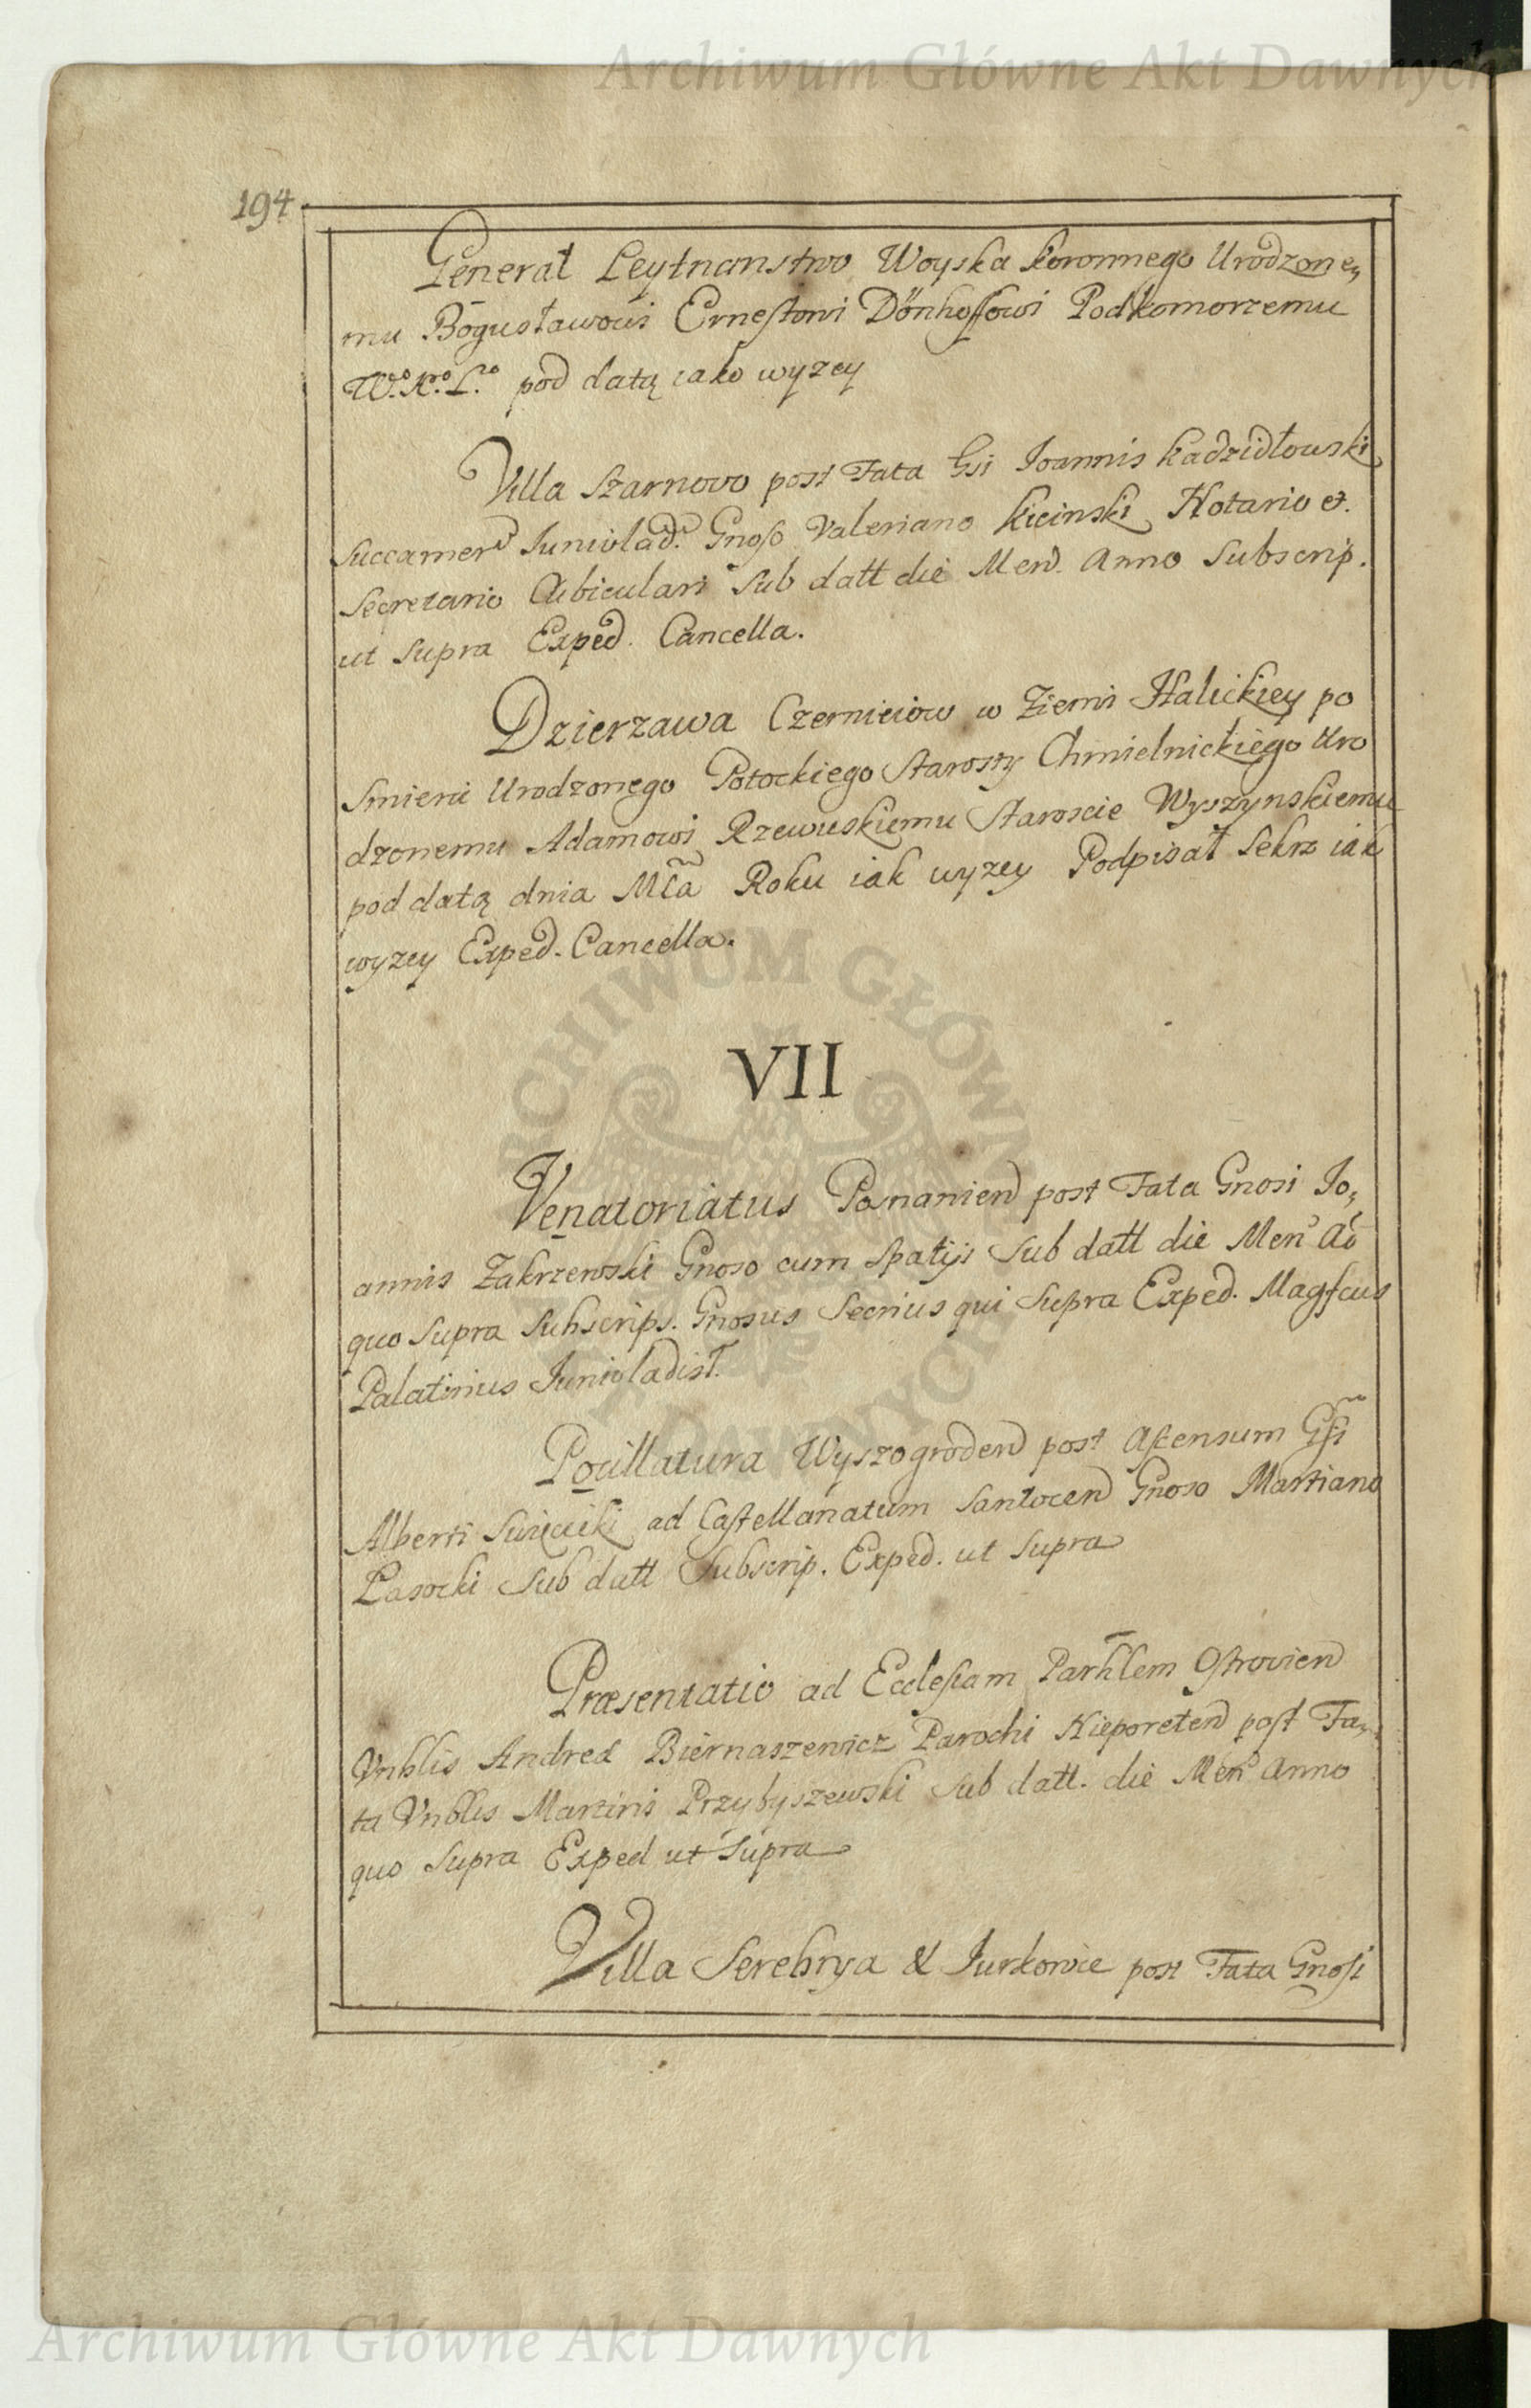 Archiwum Główne Akt Dawnych
194
Generał Leytnanstwo Woyska Koronnego Urodzone,,
mu Bogusławowi Ernestowi Dönhoffowi Podkomorzemu
W.º X.º L.º pod datą iako wyzey
Villa Szarnovo post Fata Gsi Joannis Kadzidłouski
Succamerd Junivlad. Gnoso Valeriano Kicinski Notario et.
Secretario Cubiculari Sub datt die Mend. Anno Subscrip.
ut Supra Exped. Cancella.
Dzierzawa Czerniciow w Ziemi Halickiey po
Smierci Urodzonego Potockiego Starosty Chmielnickiego Uro
dzonemu Adamowi Rzewuskiemu Staroscie Wyszynskiemu
pod datą dnia Mca Roku iak wyzey Podpisał Sekrz iak
wyzey Exped. Cancella.
ARCHIWUM GŁÓWNE AKT DAWNYCH
VII
Venatoriatus Posnaniend post Fata Gnosi Jo,,
annis Zakrzewski Gnoso cum Spatijs Sub datt die Men Ao
quo Supra Subscrips. Gnosus Secrius qui Supra Exped. Magfcus
Palatinus Junivladist.
Pocillatura Wyszogrodend post Ascensum Gsi
Alberti Swięcicki ad Castellanatum Santocend Gnoso Martiano
Lasocki Sub datt Subscrip. Exped. ut Supra
Præsentatio ad Ecclesiam Parhlem Ostroviend
Vnblis Andreæ Biernaszewicz Parochi Nieporetend post Fa,,
ta Vnblis Martini Przybyszewski Sub datt. die Men Anno
quo Supra Exped ut Supra
Villa Serebrya & Jurkowce post Fata Gnosi
Archiwum Główne Akt Dawnych